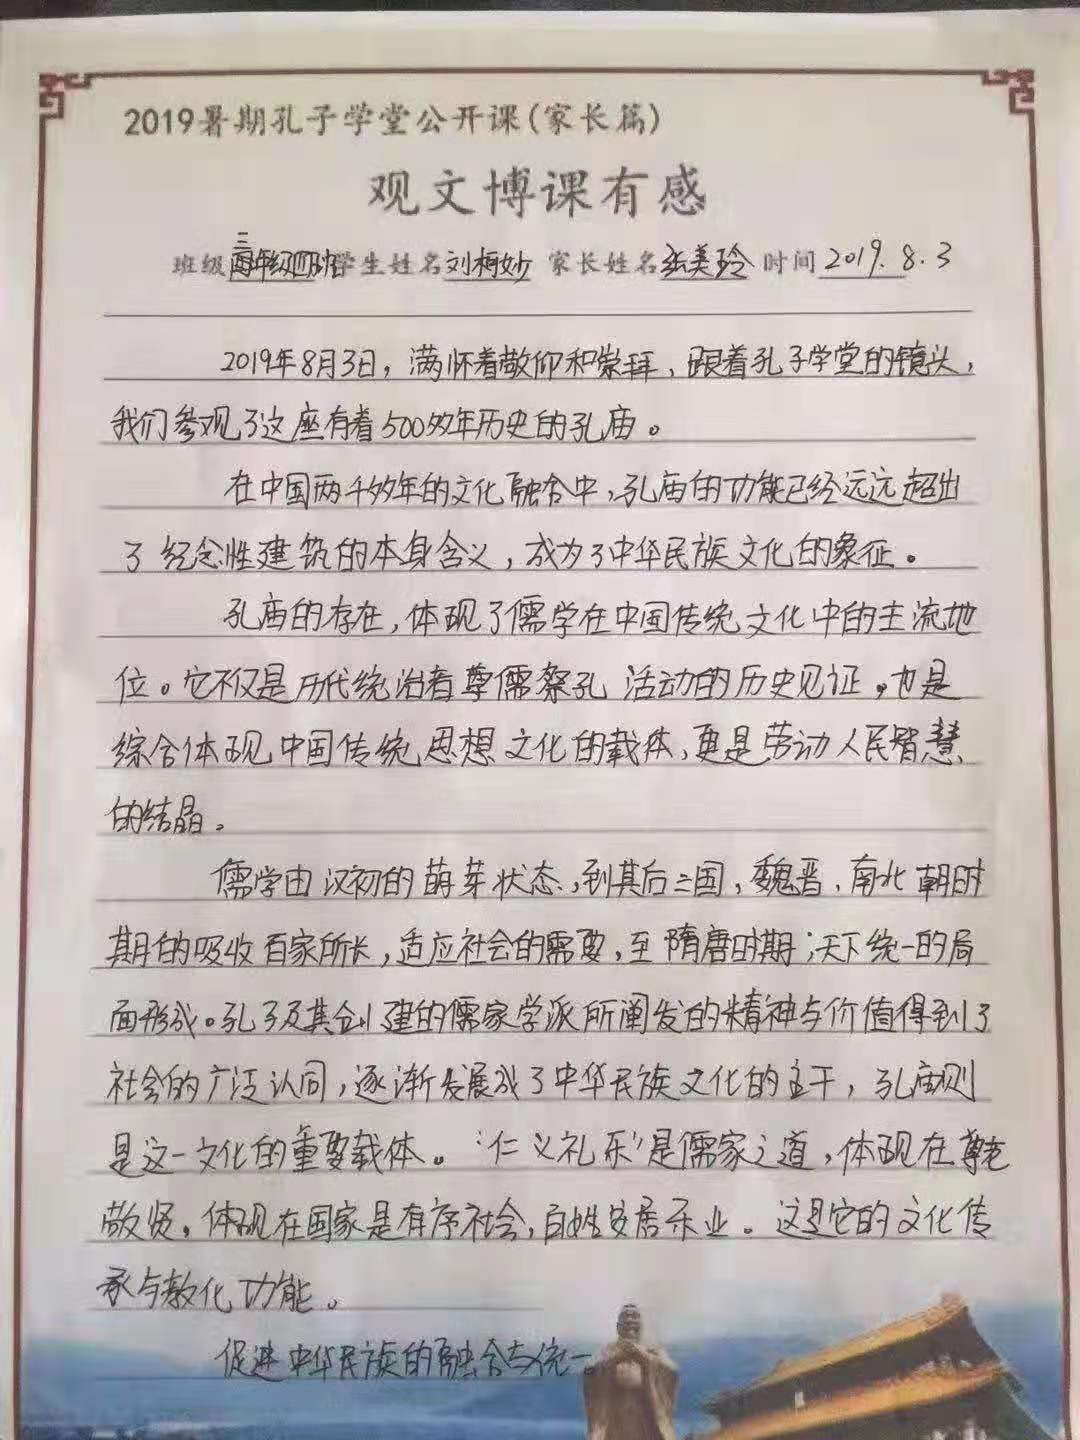 2019暑期孔子学堂公开课(家长篇)
观文博课有感
班级三年级四班学生姓名刘柯妙 家长姓名张美玲 时间2019.8.3
2019年8月3日，满怀着敬仰和崇拜，跟着孔子学堂的镜头，
我们参观了这座有着500多年历史的孔庙。
在中国两千多年的文化融合中，孔庙的功能已经远远超出
了纪念性建筑的本身含义，成为了中华民族文化的象征。
孔庙的存在，体现了儒学在中国传统文化中的主流地
位。它不仅是历代统治者尊儒祭孔活动的历史见证，也是
综合体现中国传统思想文化的载体，更是劳动人民智慧
的结晶。
儒学由汉初的萌芽状态，到其后三国，魏晋，南北朝时
期的吸收百家所长，适应社会的需要，至隋唐时期，天下统一的局
面形成。孔子及其创建的儒家学派所阐发的精神与价值得到了
社会的广泛认同，逐渐发展成了中华民族文化的主干，孔庙则
是这一文化的重要载体。“仁义礼乐”是儒家之道，体现在尊老
敬贤，体现在国家是有序社会，百姓安居乐业。这是它的文化传
承与教化功能。
促进中华民族的融合与统一。